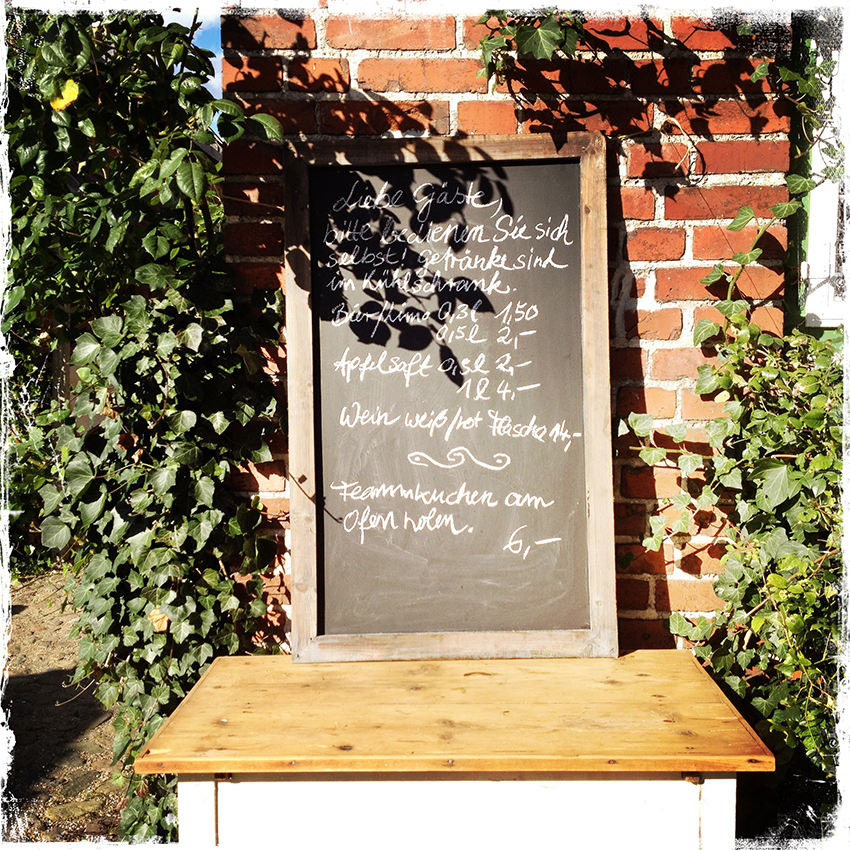 Liebe Gäste,
bitte bedienen Sie sich
selbst! Getränke sind
im Kühlschrank.
Bier/Limo 0,3l 1,50
0,5l 2,-
Apfelsaft 0,5l 2,-
1l 4,-
Wein weiß/rot Flasche 14,-
Flammkuchen am
Ofen holen.
6,-